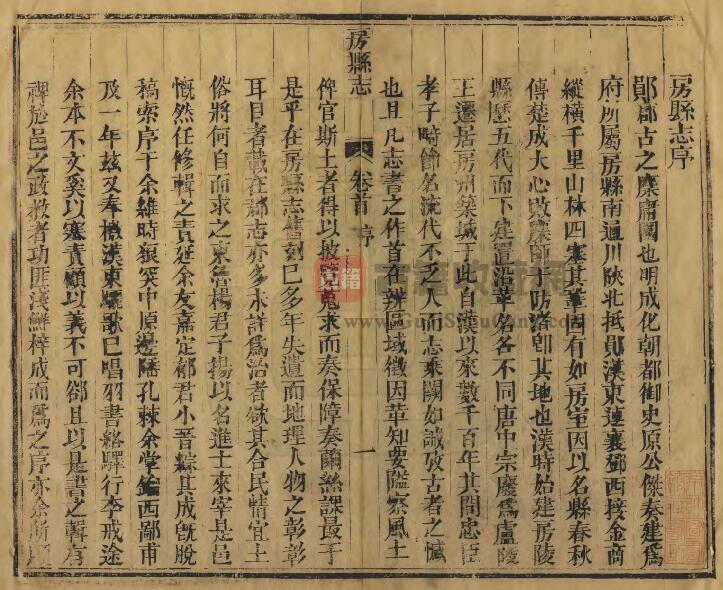 房縣志序
鄖郡古之麋庸國也明成化朝都御史原公傑奏建爲
府所屬房縣南通川陝北抵鄖漢東連襄鄧西接金商
縱橫千里山林四塞其鞏固有如房室因以名縣春秋
傳楚成大心敗麇師于防渚卽其地也漢時始建房陵
縣歷五代而下建置沿革名各不同唐中宗廢爲盧陵
王遷居房州築城于此自漢以來數千百年其間忠臣
孝子時節名流代不乏人而志乘闕如誠攷古者之憾
也且凡志書之作首在辨區域徵因革知要隘察風土
房縣志
卷首 序
一
俾官斯土者得以披覽蒐求而奏保障奏繭絲課最于
是乎在房縣志舊刻已多年失遺而地理人物之彰彰
耳目者載在郡志亦多未詳爲治者欲其合民情宜土
俗將何自而求之東魯楊君子揚以名進士來宰是邑
慨然任修輯之責延余友嘉定郁君小晉綜其成旣脫
稿索序于余維時狼突中原邊陲孔棘余堂鑰西鄙甫
及一年玆又奉檄漢東驪歌已唱羽書絡驛行李戒途
余本不文奚以塞責顧以義不可郤且以是書之輯有
裨於邑之政教者功匪淺鮮梓成而爲之序亦余所